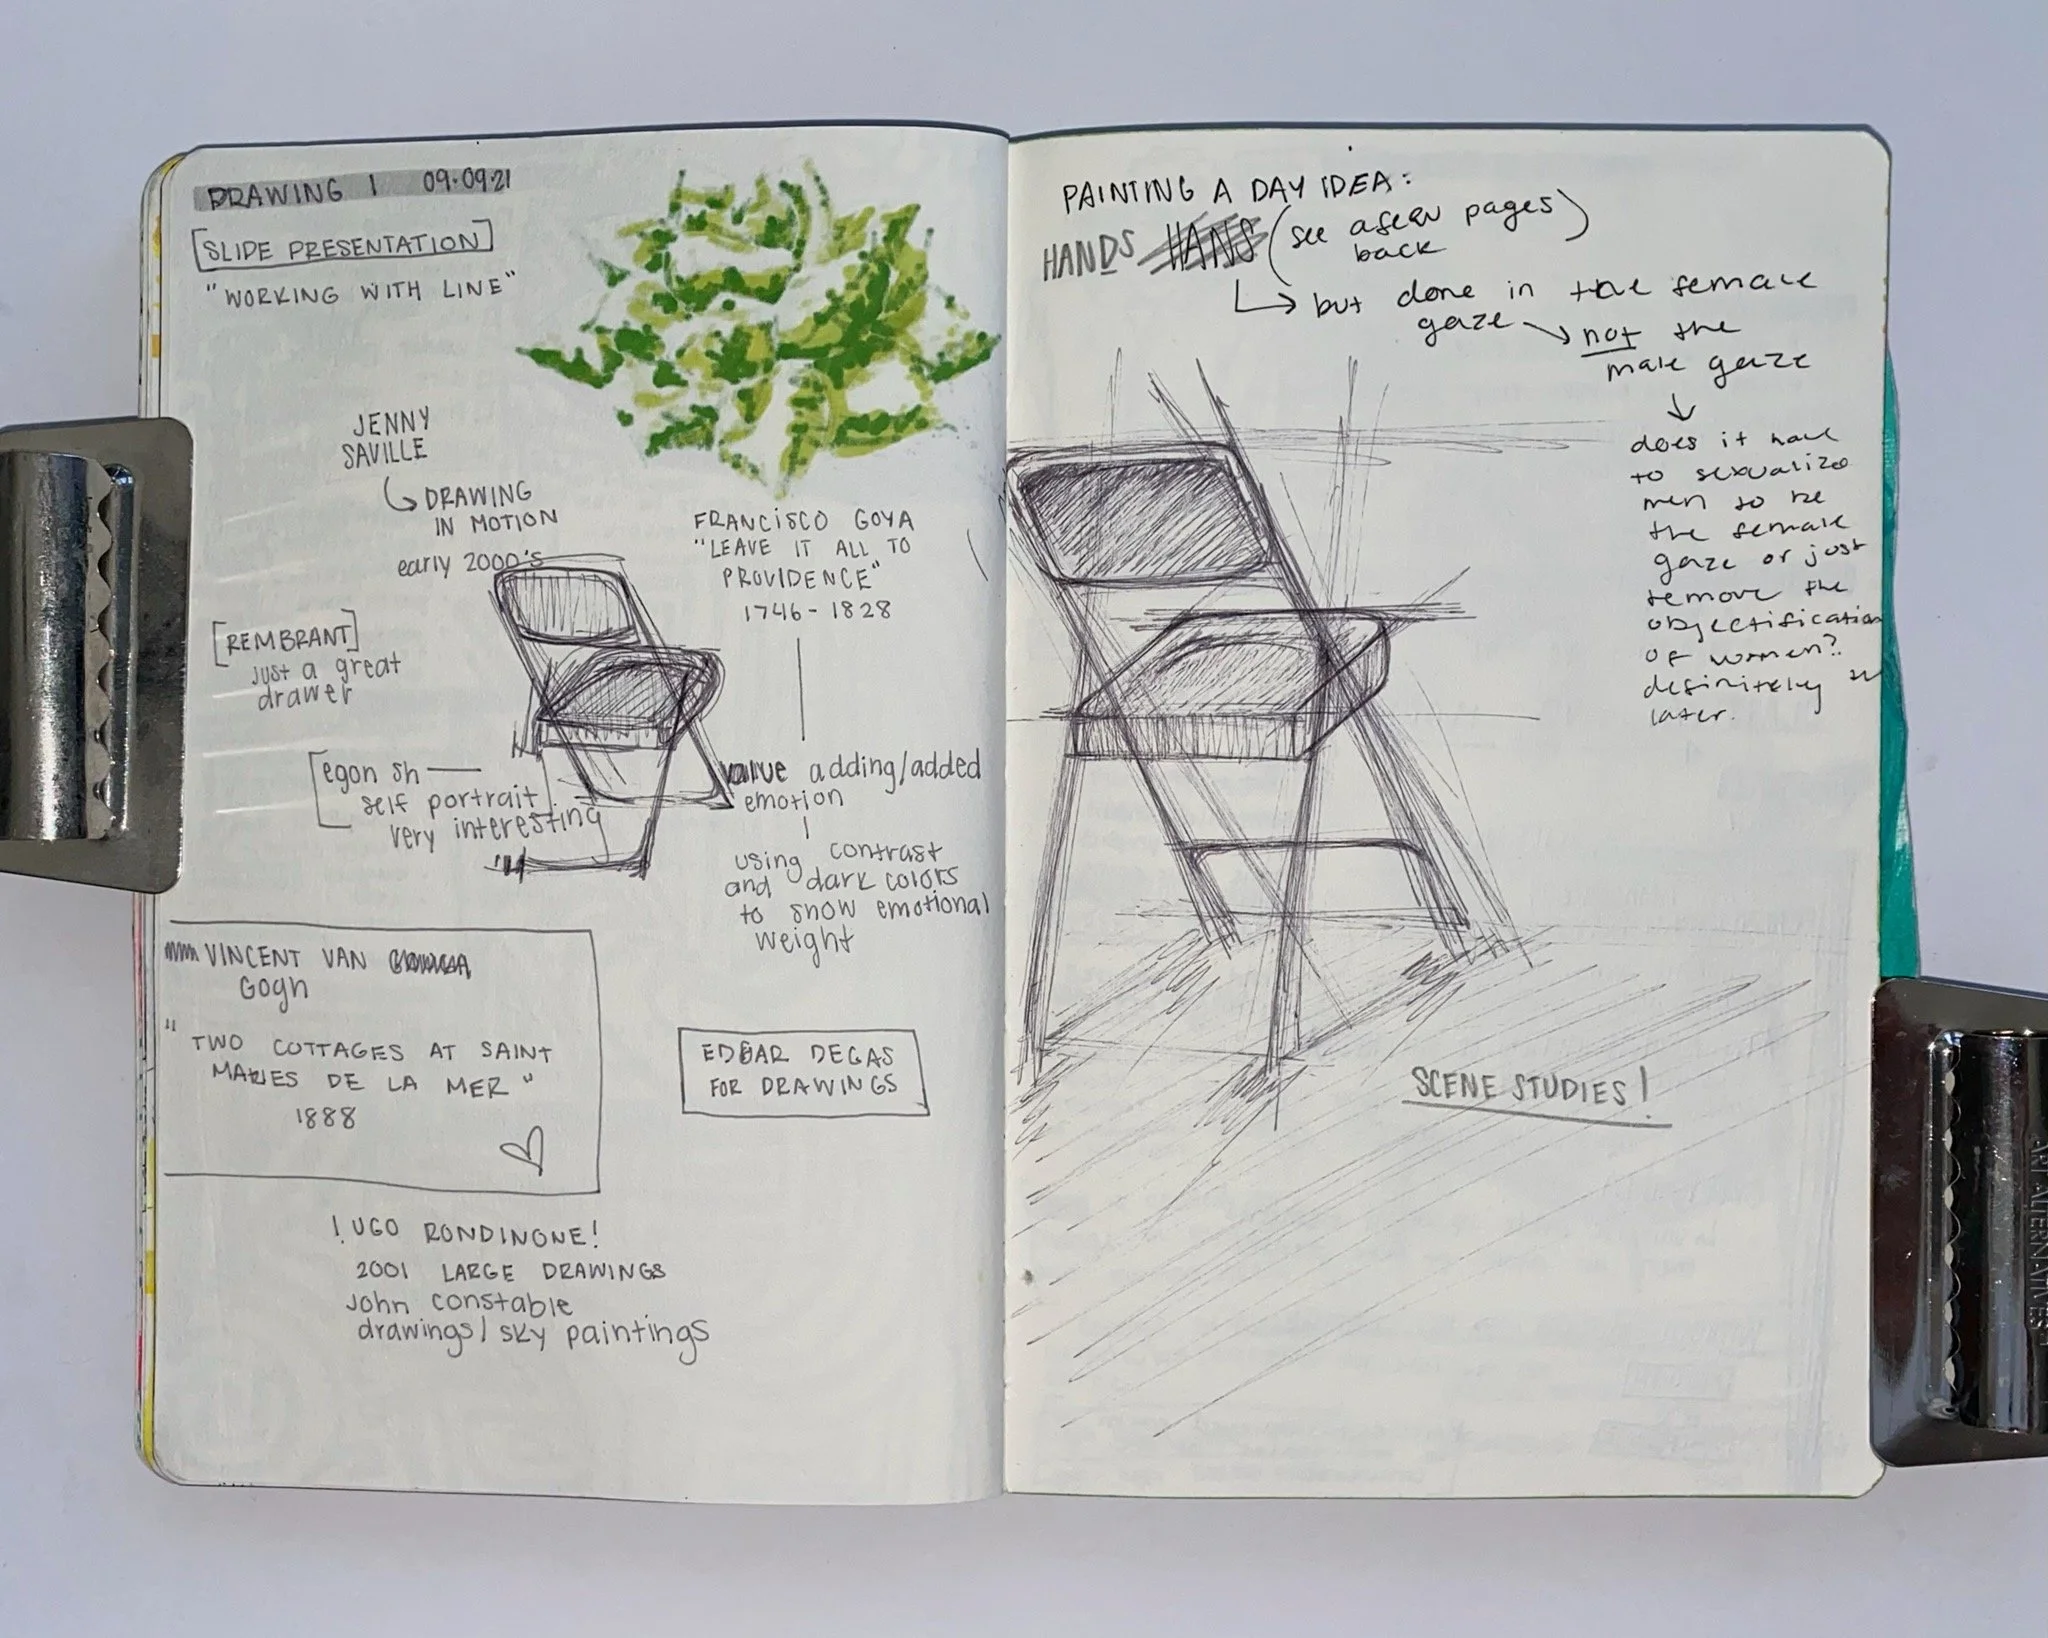 DRAWING 1 09.09.21
[SLIDE PRESENTATION]
"WORKING WITH LINE"
JENNY
SAVILLE
DRAWING
IN MOTION
early 2000's
FRANCISCO GOYA
"LEAVE IT ALL TO
PROVIDENCE"
1746-1828
[REMBRANT]
just a great
drawer
egon sh
self portrait
very interesting
value adding/added
emotion
using contrast
and dark colors
to show emotional
weight
VINCENT VAN
Gogh
"TWO COTTAGES AT SAINT
MARIES DE LA MER"
1888
EDGAR DEGAS
FOR DRAWINGS
! UGO RONDINONE!
2001 LARGE DRAWINGS
John constable
drawings/ sky paintings
PAINTING A DAY IDEA:
HANDS HANS (see a few pages
back)
but done in the female
gaze
not the
male gaze
does it have
to sexualize
men to be
the female
gaze or just
remove the
objectification
of women?
definitely
later.
SCENE STUDIES!
ART ALTERNATIVES